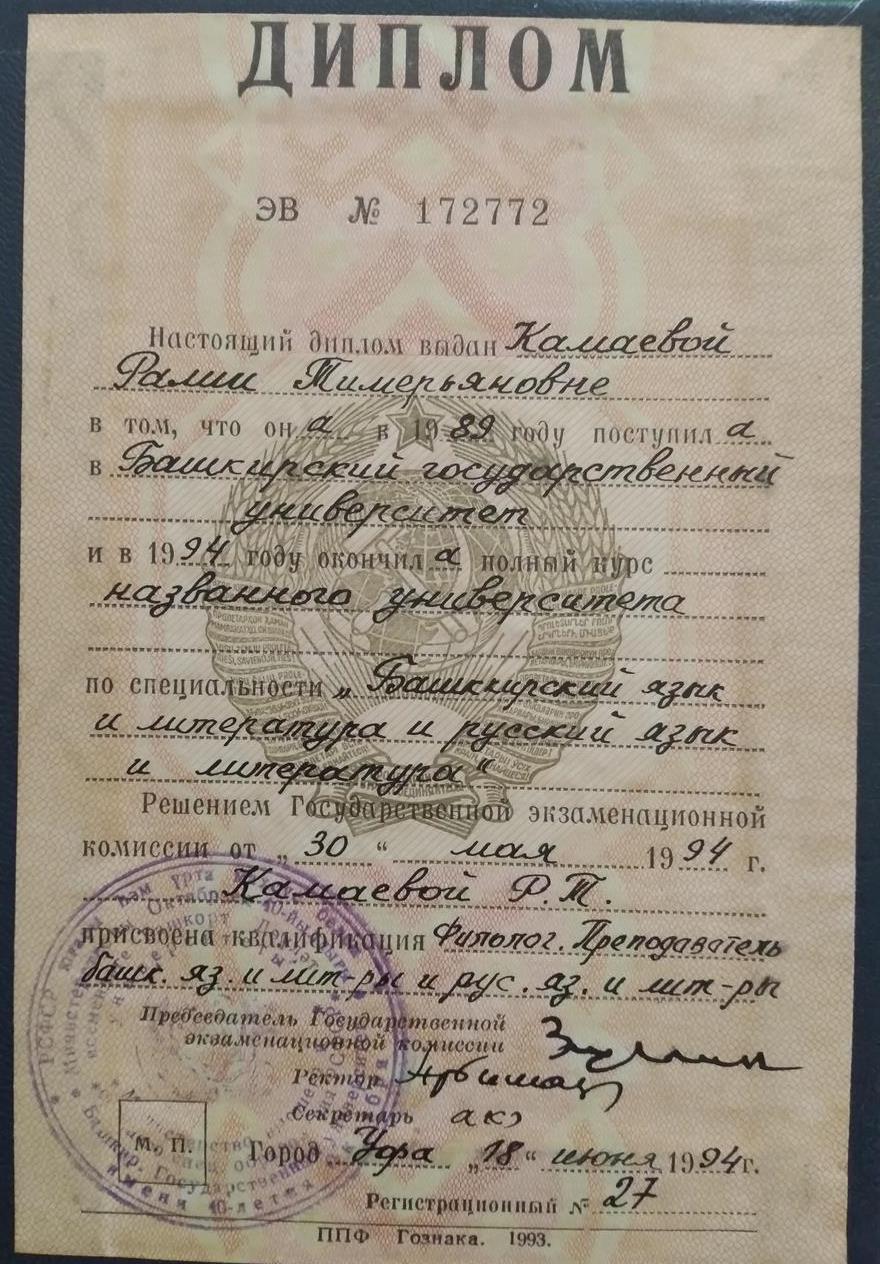 ДИПЛОМ
ЭВ № 172772
Настоящий диплом выдан Камаевой
Рамии Тимерьяновне
в том, что он а в 1989 году поступил а
в Башкирский государственный
университет
и в 1994 году окончил а полный курс
названного университета
по специальности „Башкирский язык
и литература и русский язык
и литература“
Решением Государственной экзаменационной
комиссии от „30“ мая 1994 г.
Камаевой Р.Т.
присвоена квалификация Филолог. Преподаватель
башк. яз. и лит-ры и рус. яз. и лит-ры
Председатель Государственной
экзаменационной комиссии
Ректор
Секретарь
М. П.
Город Уфа „18“ июня 1994г.
Регистрационный № 27
ППФ Гознака. 1993.